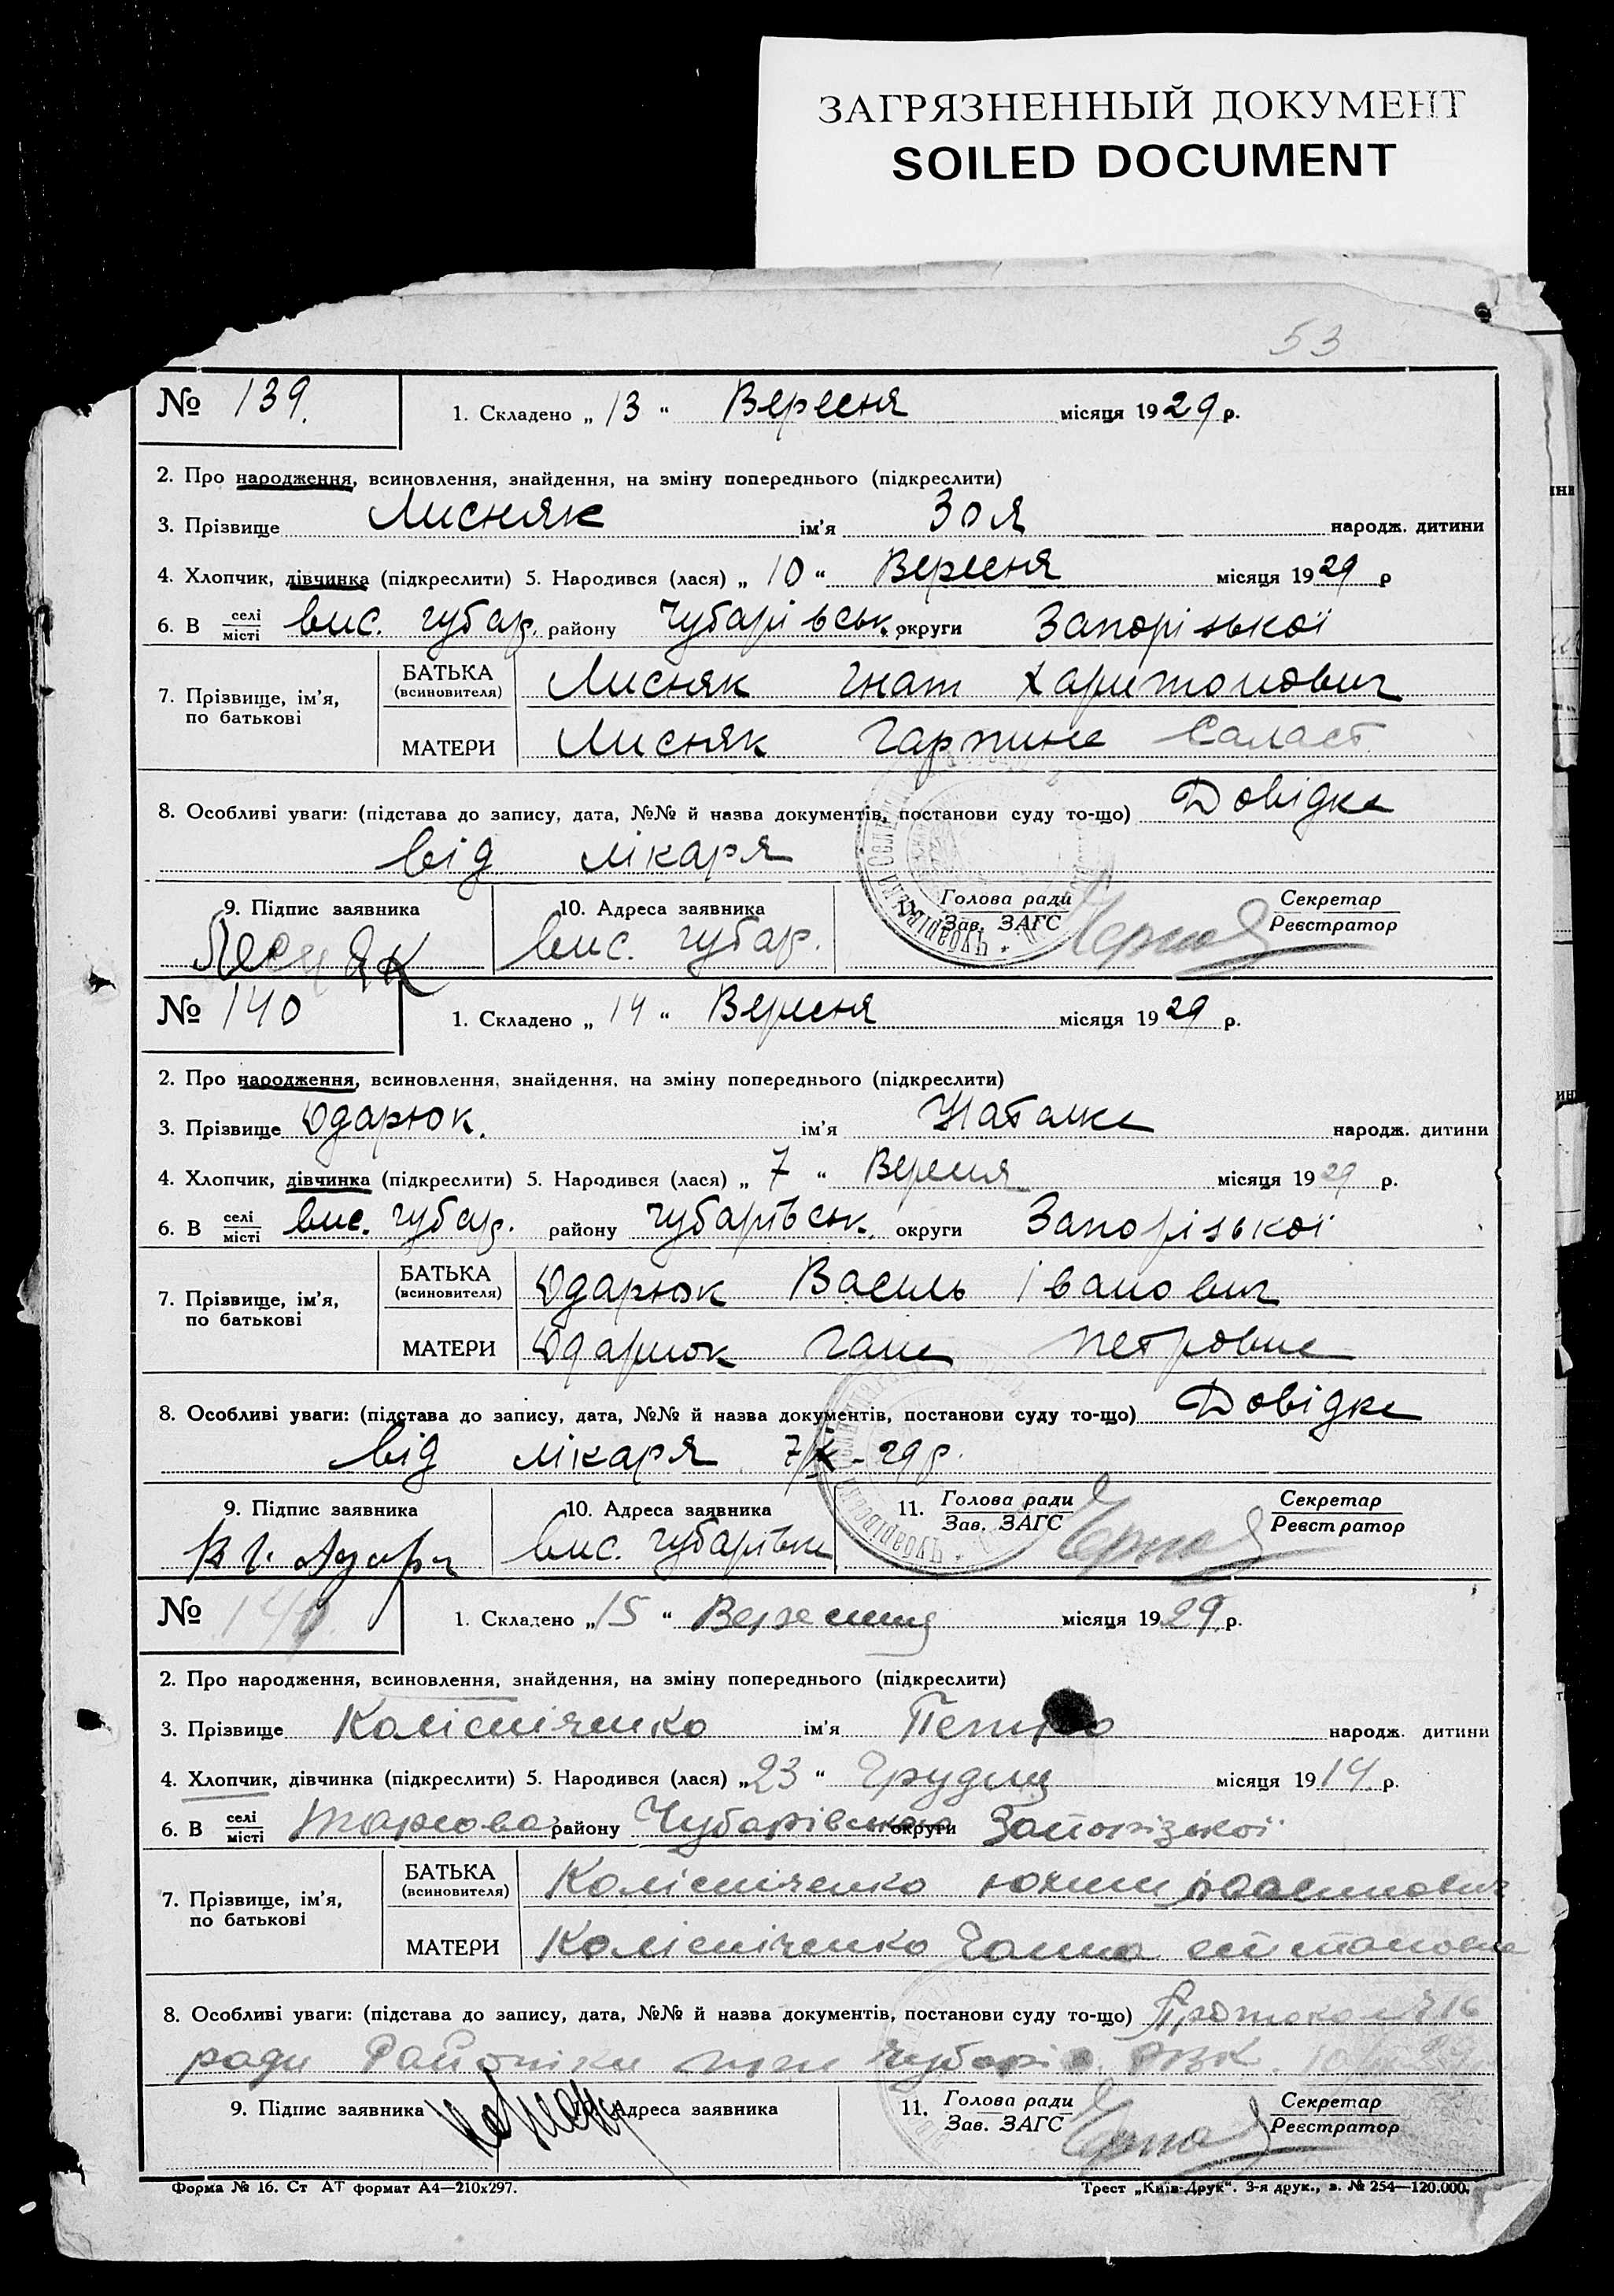 ЗАГРЯЗНЕННЫЙ ДОКУМЕНТ
SOILED DOCUMENT
53
№ 139. 1. Складено „ 13 “ Вересня місяця 1929 р.
2. Про народження, всиновлення, знайдення, на зміну попереднього (підкреслити)
3. Прізвище Лисняк ім’я Зоя народж. дитини
4. Хлопчик, дівчинка (підкреслити) 5. Народився (лася) „ 10 “ Вересня місяця 1929 р
6. В селі/місті вис. Чубар. району Чубарівськ. округи Запорізької
БАТЬКА (всиновителя) Лисняк Гнат Харитонович
7. Прізвище, ім’я, по батькові
МАТЕРИ Лисняк Гарпина Саласт.
8. Особливі уваги: (підстава до запису, дата, №№ й назва документів, постанови суду то-що) Довідка
від лікаря
9. Підпис заявника 10. Адреса заявника Голова ради Зав. ЗАГС Секретар Реєстратор
Лесняк вис. Чубар.
№ 140 1. Складено „ 14 “ Вересня місяця 1929 р.
2. Про народження, всиновлення, знайдення, на зміну попереднього (підкреслити)
3. Прізвище Одарюк. ім’я Наталка народж. дитини
4. Хлопчик, дівчинка (підкреслити) 5. Народився (лася) „ 7 “ Вересня місяця 1929 р.
6. В селі/місті вис. Чубар. району Чубарівськ. округи Запорізької
БАТЬКА (всиновителя) Одарюк Василь Іванович
7. Прізвище, ім’я, по батькові
МАТЕРИ Одарюк Гана Петровна
8. Особливі уваги: (підстава до запису, дата, №№ й назва документів, постанови суду то-що) Довідка
від лікаря 7/X - 29 р.
9. Підпис заявника 10. Адреса заявника 11. Голова ради Зав. ЗАГС Секретар Реєстратор
вис. Чубарівка
№ 140 1. Складено „ 15 “ Вересня місяця 1929 р.
2. Про народження, всиновлення, знайдення, на зміну попереднього (підкреслити)
3. Прізвище Колісніченко ім’я Петро народж. дитини
4. Хлопчик, дівчинка (підкреслити) 5. Народився (лася) „ 23 “ Грудня місяця 1914 р.
6. В селі/місті району Чубарівського округи Запорізької
БАТЬКА (всиновителя) Колісніченко
7. Прізвище, ім’я, по батькові
МАТЕРИ Колісніченко Ганна
8. Особливі уваги: (підстава до запису, дата, №№ й назва документів, постанови суду то-що) Протокол № 16
ради
9. Підпис заявника Адреса заявника 11. Голова ради Зав. ЗАГС Секретар Реєстратор
Форма № 16. Ст АТ формат А4—210х297. Трест „Київ-Друк“. 3-я друк., з. № 254—120.000.